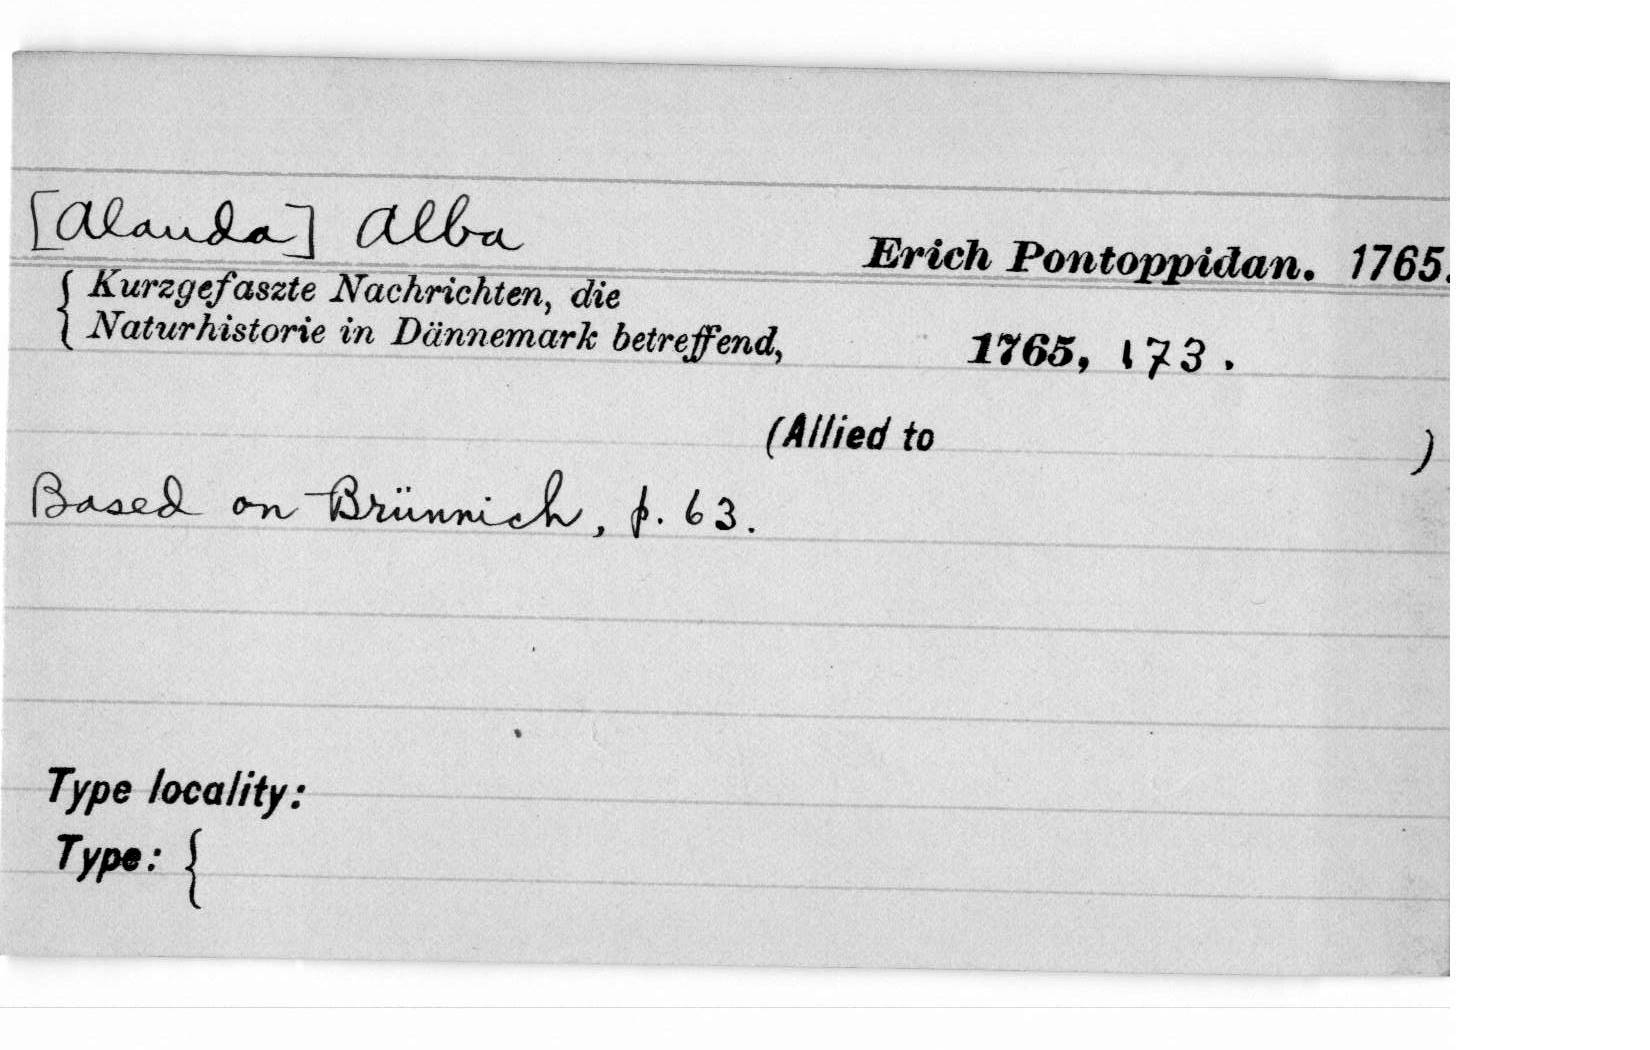 [Alauda] Alba
Erich Pontoppidan. 1765.
{ Kurzgefaszte Nachrichten, die
Naturhistorie in Dännemark betreffend,
1765, 173.
(Allied to )
Based on Brünnich, p. 63.
Type locality:
Type: {